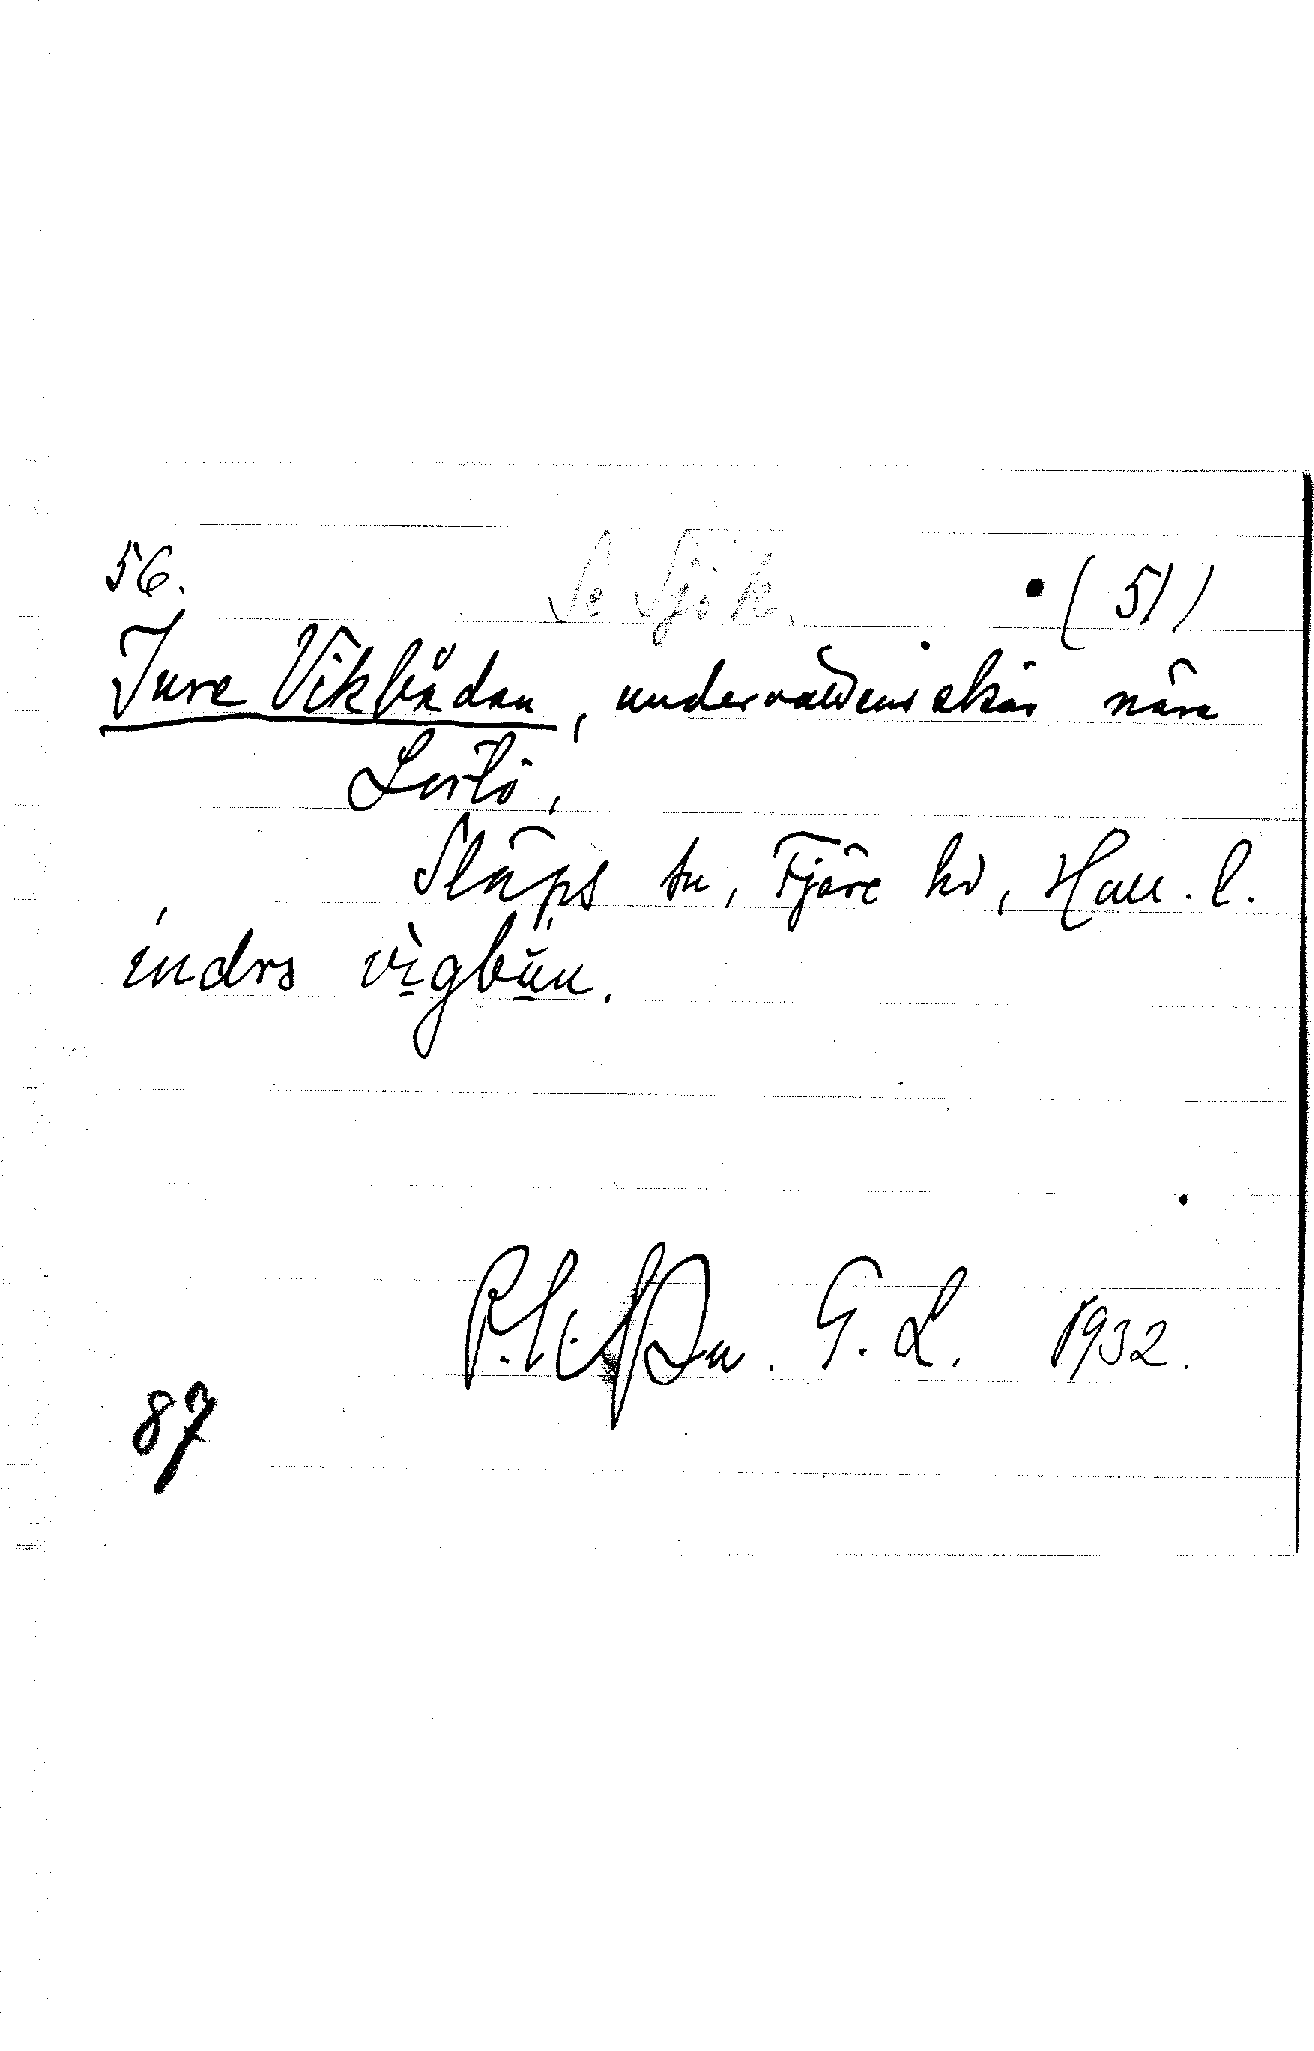 56. Se Sjök. (51)
Inre Vikbådan, undervattensskär nära
Lerlö,
Släps sn, Fjäre hd, Hall. l.
indrs vìgbån.
G. L. 1932.
87